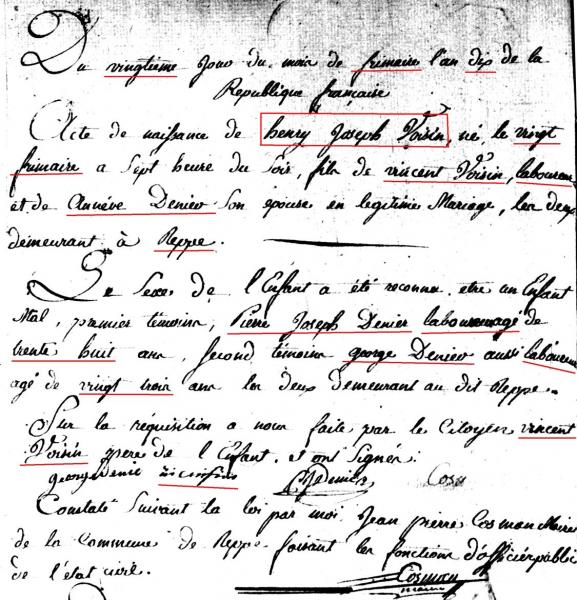 Du vingtieme Jour du mois de frimaire l'an dix de la
Republique française
Acte de naissance de henry Joseph Voisin, né le vingt
frimaire a Sept heure du Soir, fils de vincent Voisin, laboureur
et de Annéve Denier Son epouse en legitime Mariage, les deux
demeurant à Reppe.
Le Sexe de l'Enfant a été reconnu etre un Enfant
Mal, premier témoin, Pierre Joseph Denier laboureur agé de
trente huit ans, Second témoin george Denier aussi laboureur
agé de vingt trois ans les deux demeurant au dit Reppe.
Sur la réquisition a nous faite par le Citoyen vincent
Voisin pere de l'Enfant. et ont Signés.
george Denie PJ Denier Cosm
Constaté Suivant la loi par moi Jean pierre Cosman Maire
de la Commune de Reppe faisant les fonctions d'officier public
de l'état civil.
Cosman
maire